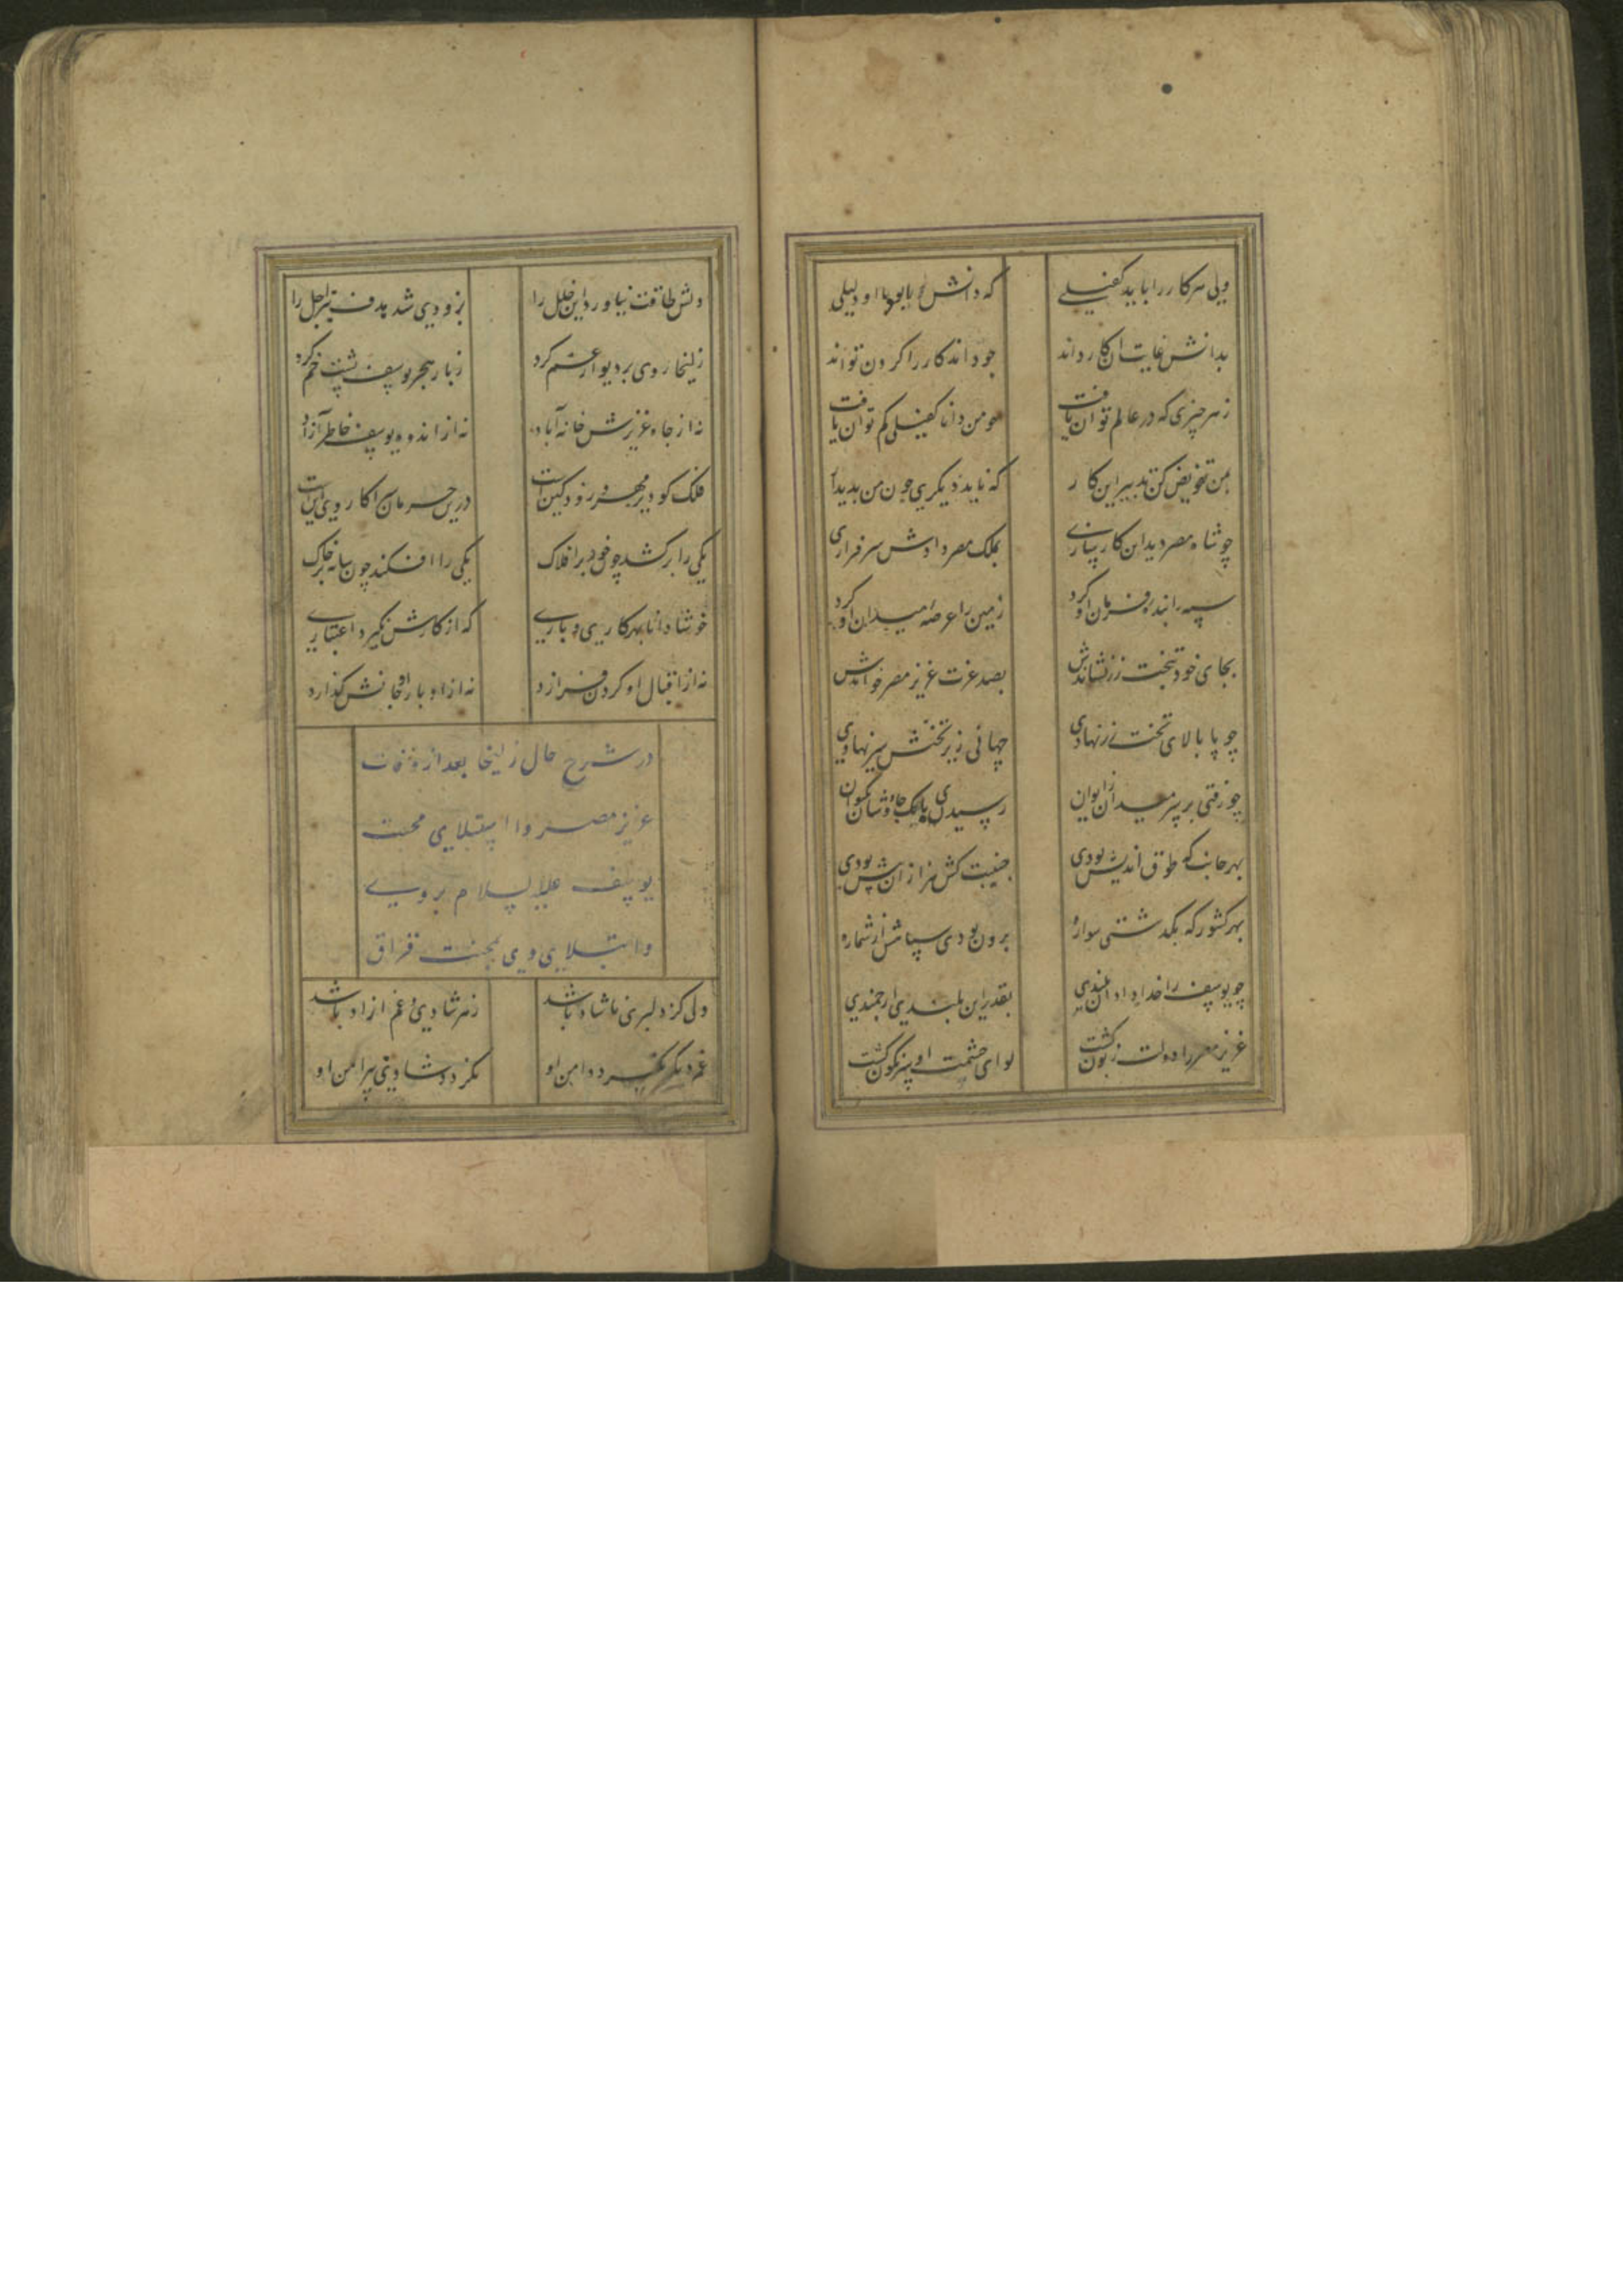 ولی هر کار را باید کفیلی که دانش بود با او دلیلی
بدانش غایت آن کار داند چو داند کار را کردن تواند
ز هر چیزی که در عالم توان یافت چو من دانا کفیلی کم توان یافت
بمن تفویض کن تدبیر این کار که ناید دیگری چون من پدیدار
چو شاه مصر دید این کارسازی بملک مصر دادش سرفرازی
سپه را بنده فرمان او کرد زمین را عرصه میدان او کرد
بجای خود بتخت زر نشاندش بصد عزت عزیز مصر خواندش
چو پا بالای تخت زر نهادی جهانی زیر تختش سر نهادی
چو رفتی بر سر میدان ز ایوان رسیدی بانک چاوشان بکیوان
بهر جانب که طوق اندیش بودی جنیبت کش هزارانش بودی
بهر کشور که بگذشتی سواره برون بودی سپاهش از شماره
چو یوسف را خدا داد آن بلندی بقدر این بلندی ارجمندی
عزیز مصر را دولت زبون گشت لوای حشمت او سرنگون گشت
دلش طاقت نیاورد این خلل را بزودی شد هدف تیر اجل را
زلیخا روی بر دیوار غم کرد ز بار هجر یوسف پشت خم کرد
نه از جاه عزیزش خانه آباد نه از اندوه یوسف خاطر آزاد
فلک کو دیر مهر و زود کین است درین حرمان سرا کار وی این است
یکی را برکشد چون خور بر افلاک یکی را افکند چون سایه بر خاک
خوشا دانا بهر کاری و باری که از کارش نگیرد اعتباری
نه از اقبال او گردن فرازد نه از ادبار او جانش گدازد
در شرح حال زلیخا بعد از وفات
عزیز مصر و استیلای محبت
یوسف علیه السلام بر وی
و ابتلای وی بمحنت فراق
ولی کز دلبری ناشاد باشد ز هر شادی و غم آزاد باشد
غم دیگر نگیرد دامن او نگردد شادیی پیرامن او